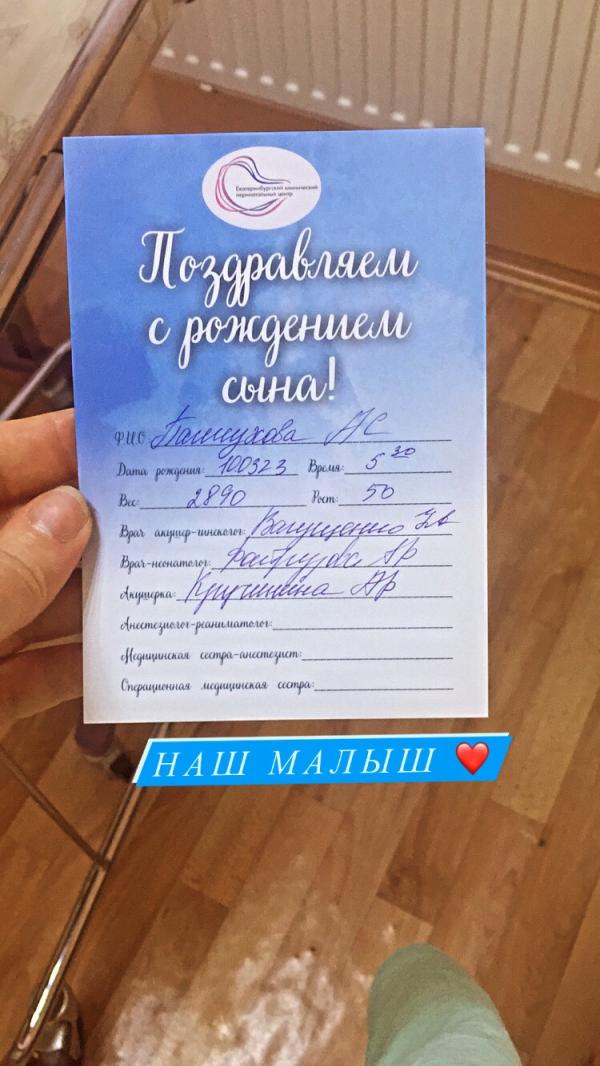 Екатеринбургский клинический
перинатальный центр
Поздравляем
с рождением
сына!
Ф.И.О. АС
Дата рождения: 100323 Время: 5 30
Вес: 2890 Рост: 50
Врач акушер-гинеколог:
Врач-неонатолог: АР
Акушерка: Кручинина АР
Анестезиолог-реаниматолог:
Медицинская сестра-анестезист:
Операционная медицинская сестра:
НАШ МАЛЫШ ❤️